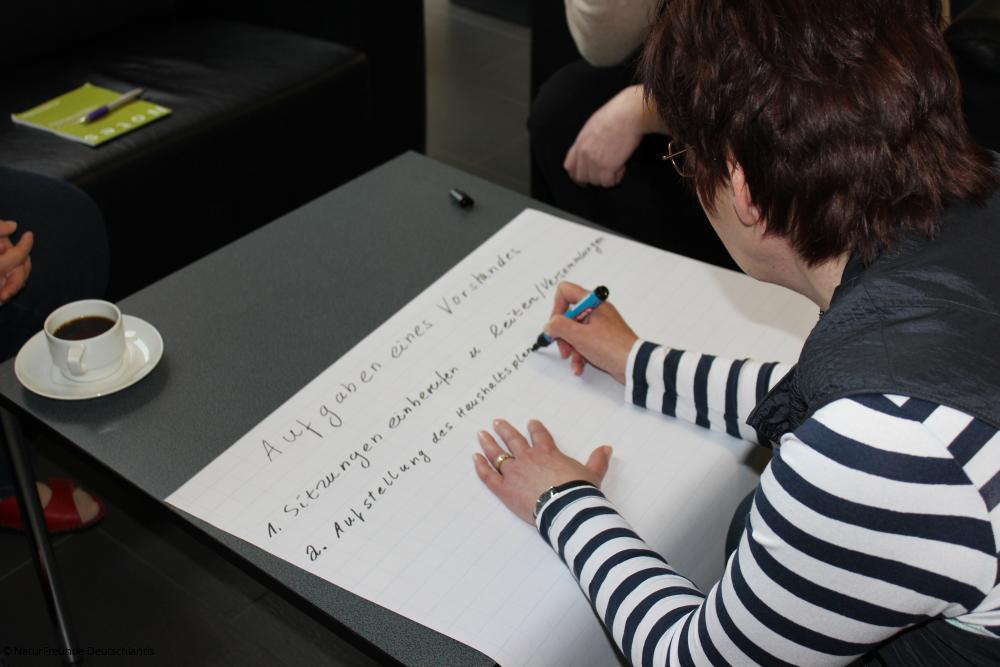 Aufgaben eines Vorstandes
1. Sitzungen einberufen u leiten/Versammlungen
2. Aufstellung des Haushaltsplan
© NaturFreunde Deutschlands